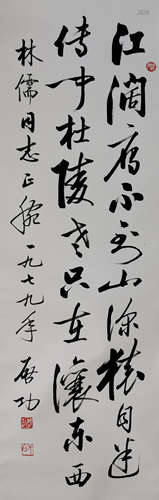 江阔彦不到山深猿自迷
传中杜陵老只在瀼东西
林儒同志正腕一九七九年 启功